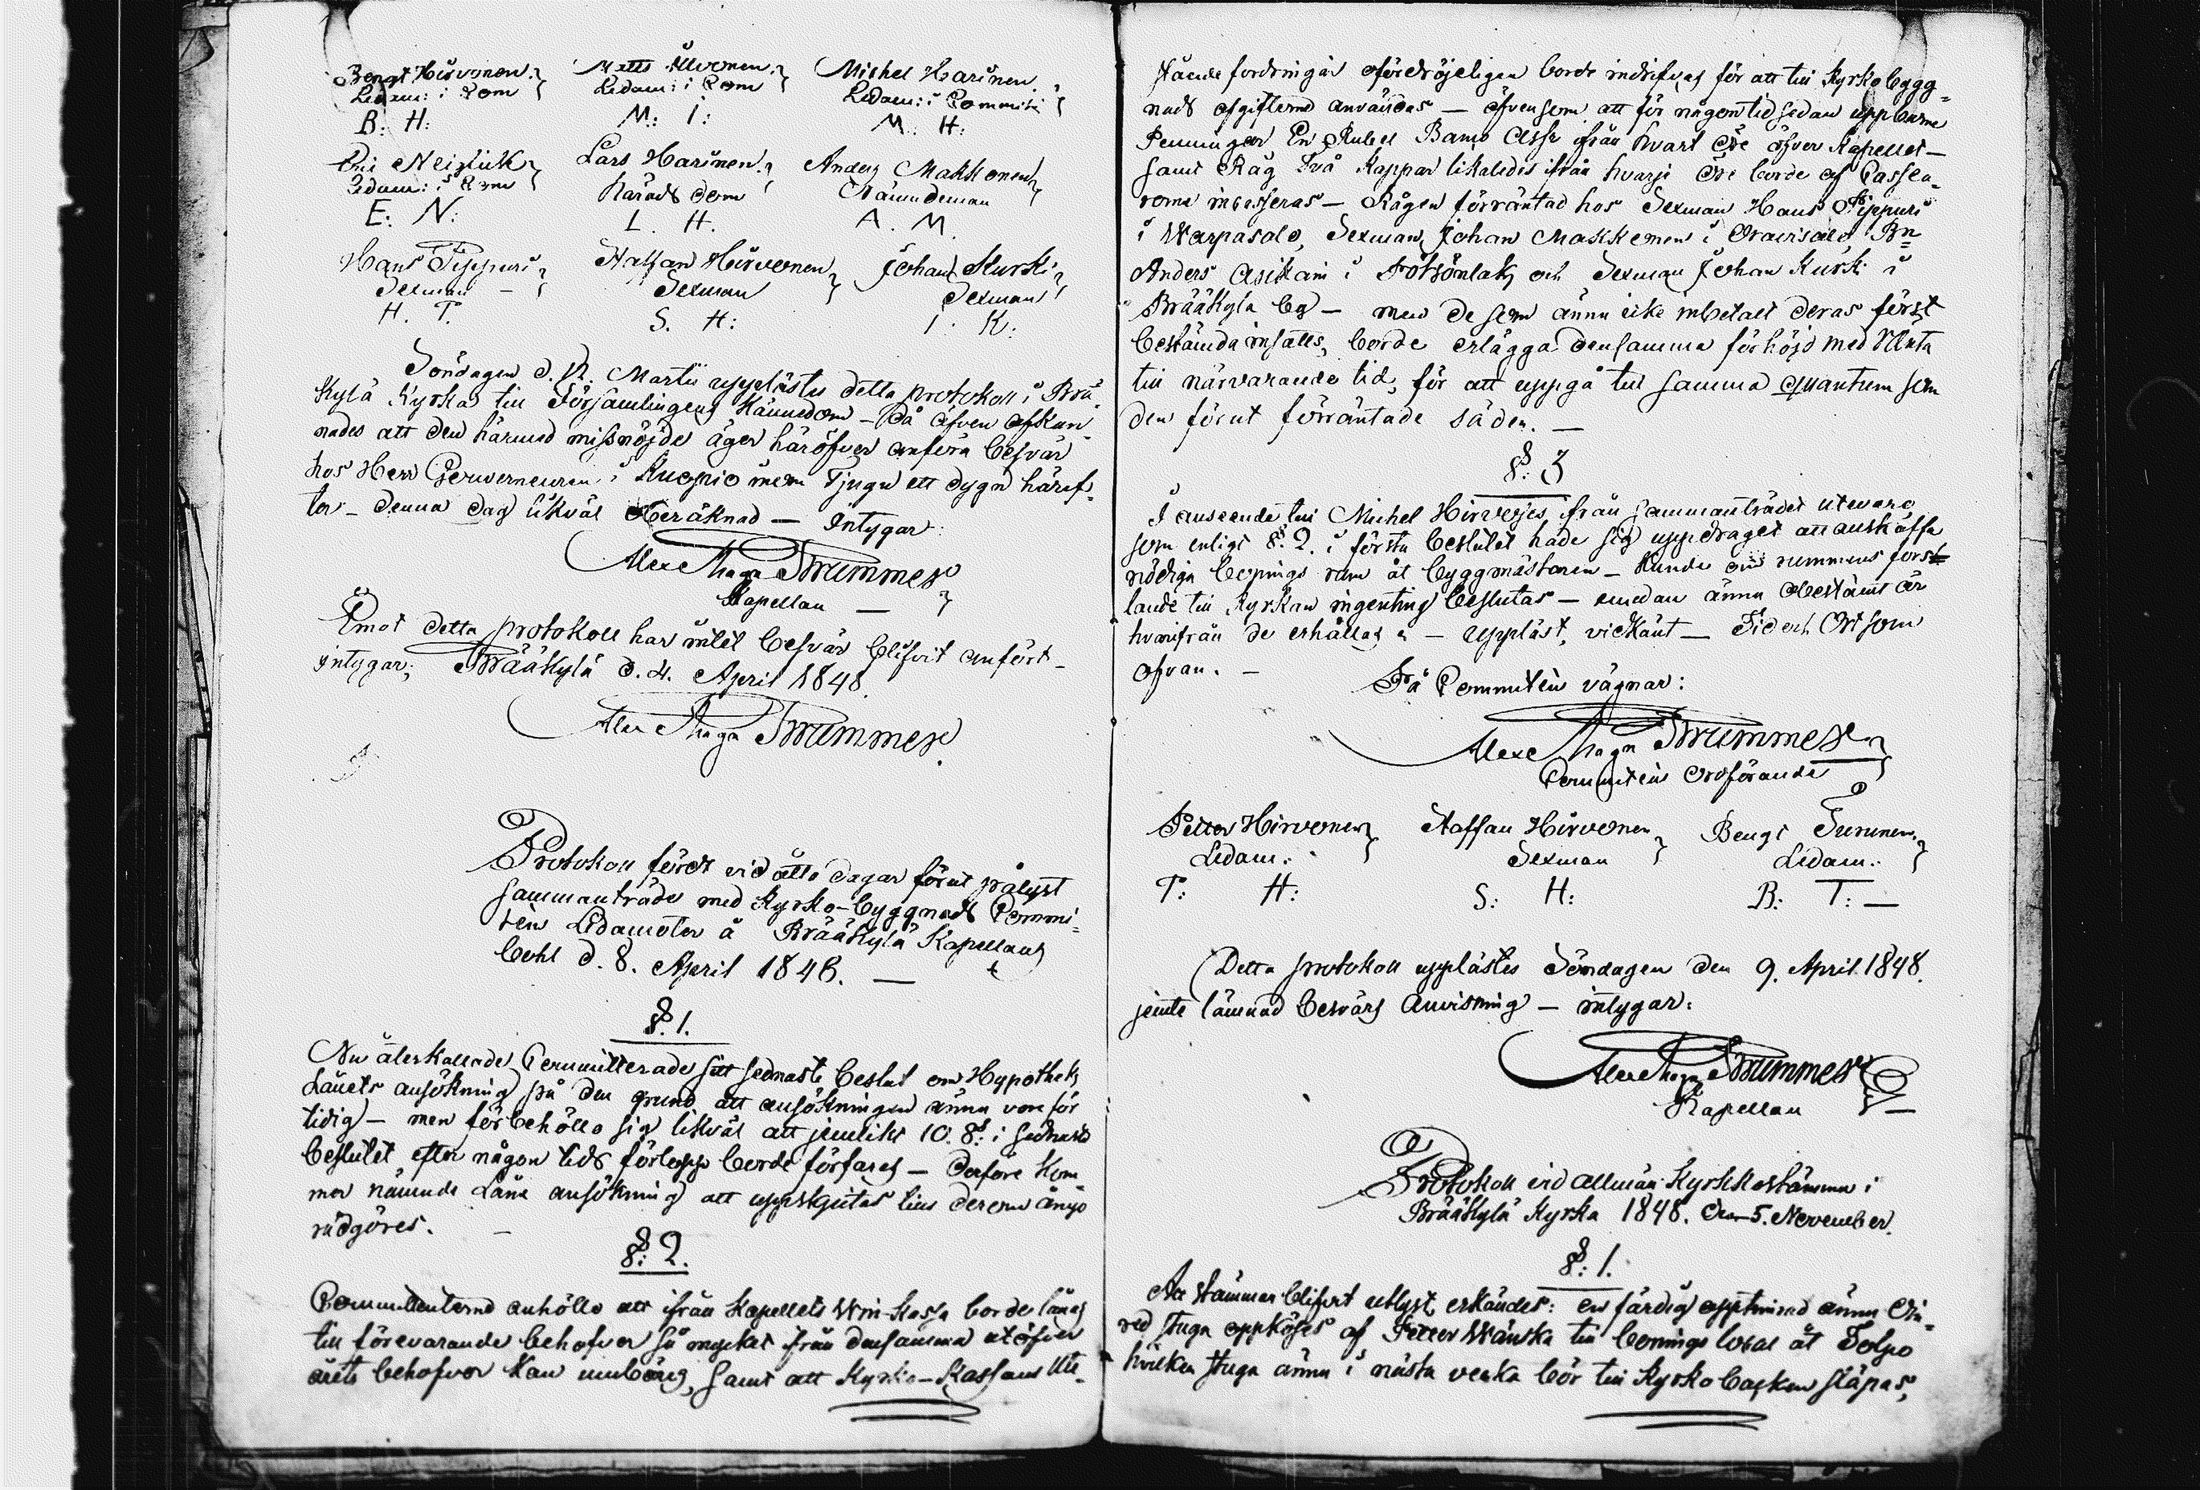 Bengt Hirvonen Matts Ilvonen Michel Harinen
Ledam: i Com Ledam: i Com Ledam: i Commité
B: H: M: I: M: H:
Eri Neiglick Lars Harinen Anders Makkonen
Ledam: i Com Härads dom Nämndeman
E: N: L. H. A. M.
Hans Tippuri Staffan Hirvonen Johan Kurki
Sexman Sexman Sexman
H. T. S. H: I. K:
Söndagen d. 12. Martii upplästes detta protokoll i Brä-
kylä Kyrka till Församlingens kännedom – då äfven afkun-
nades att den härmed missnöjde äger häröfver anföra besvär
hos Herr Gouverneuren i Kuopio inom Tjugu ett dygn häref-
ter – denna dag likväl oberäknad – Intygar:
Alex Magn Brummer
Kapellan
Emot detta protokoll har intet besvär blifvit anfört –
intygar; Brääkylä d. 4. April 1848.
Alex Magn Brummer
Protokoll fördt vid åtta dagar förut pålyst
sammanträde med Kyrko-byggnads Commi-
téns Ledamöter å Brääkylä Kapellans
bohl d. 8. April 1848. —
§. 1.
Nu återkallade Committerade sitt sednaste beslut om Hypotheks
Lånets ansökning på den grund att ansökningen ännu vore för
tidig – men förbehöllo sig likväl att jemlikt 10. §: i sednaste
beslutet efter någon tids förlopp borde förfaras – derföre kom-
mer nämnde Låne ansökning att uppskjutas tills derom ånyo
rådgöres. –
§: 2.
Committenterne anhöllo att ifrån Kapellets Win-kassa borde lånas
till förevarande behofver så mycket från densamma utöfver
årets behofver kan umbäras, samt att Kyrko-Kassans Ute-
stående fordringar ofördröjeligen borde indrifvas för att till Kyrkobygg-
nads afgifterna användas – äfvensom att för någon tid sedan uppburne
Penningar En Rubel Banco Assg ifrån hvart Öre öfver Kapellet –
samt Råg Två Kappar likaledes ifrån hvarje Öre borde af Cassea-
rorne incasseras – Rågen förräntad hos Sexman Hans Tippuri
i Warpasalo, Sexman Johan Makkonen i Oravisalo Bn
Anders Asikain i Potsönlaks och Sexman Johan Kurki i
Brääkylä by – men de som ännu icke inbetalt deras först
bestämda insatts, borde erlägga densamma förhöjd med Ränta
till närvarande tid, för att uppgå till samma quantum som
den förut förräntade säden. —
§: 3
I anseende till Michel Hirvojes från sammanträdet utevaro
som enligt §. 2. i första beslutet hade sig uppdraget att anskaffa
nödiga bonings rum åt byggmästaren – kunde om rummens forst-
lande till Kyrkan ingenting beslutas – emedan ännu obestämt är
hvarifrån de erhållas – Uppläst, vidkänt – Tid och Ort som
ofvan. –
På Committéns vägnar:
Alex Magn Brummer
Committéns Ordförande
Petter Hirvonen Staffan Hirvonen Bengt Turunen
Ledam: Sexman Ledam:
P: H: S: H: B: T: —
Detta protokoll upplästes Söndagen den 9. April 1848.
jemte lämnad besvärs Anvisning – intygar:
Alex Magn Brummer
Kapellan
Protokoll vid allmän Kyrkkostämma i
Brääkylä Kyrka 1848. den 5. November.
§: 1.
Att stämman blifvit utlyst, erkändes: en färdig opptimrad ännu
red stuga oppköpes af Petter Wänskä till bonings lokal åt Tolpo
hvilken stuga ännu i nästa vecka bör till Kyrko backen släpas,